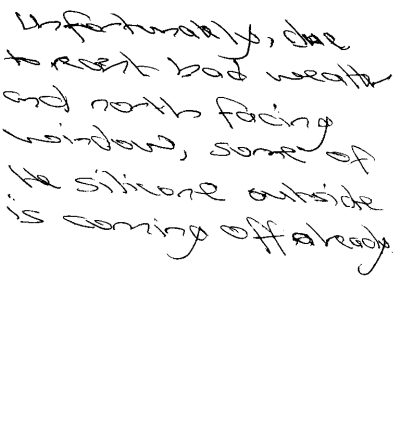 Unfortunately, due
to recent bad weather
and north facing
window, some of
the silicone outside
is coming off already.